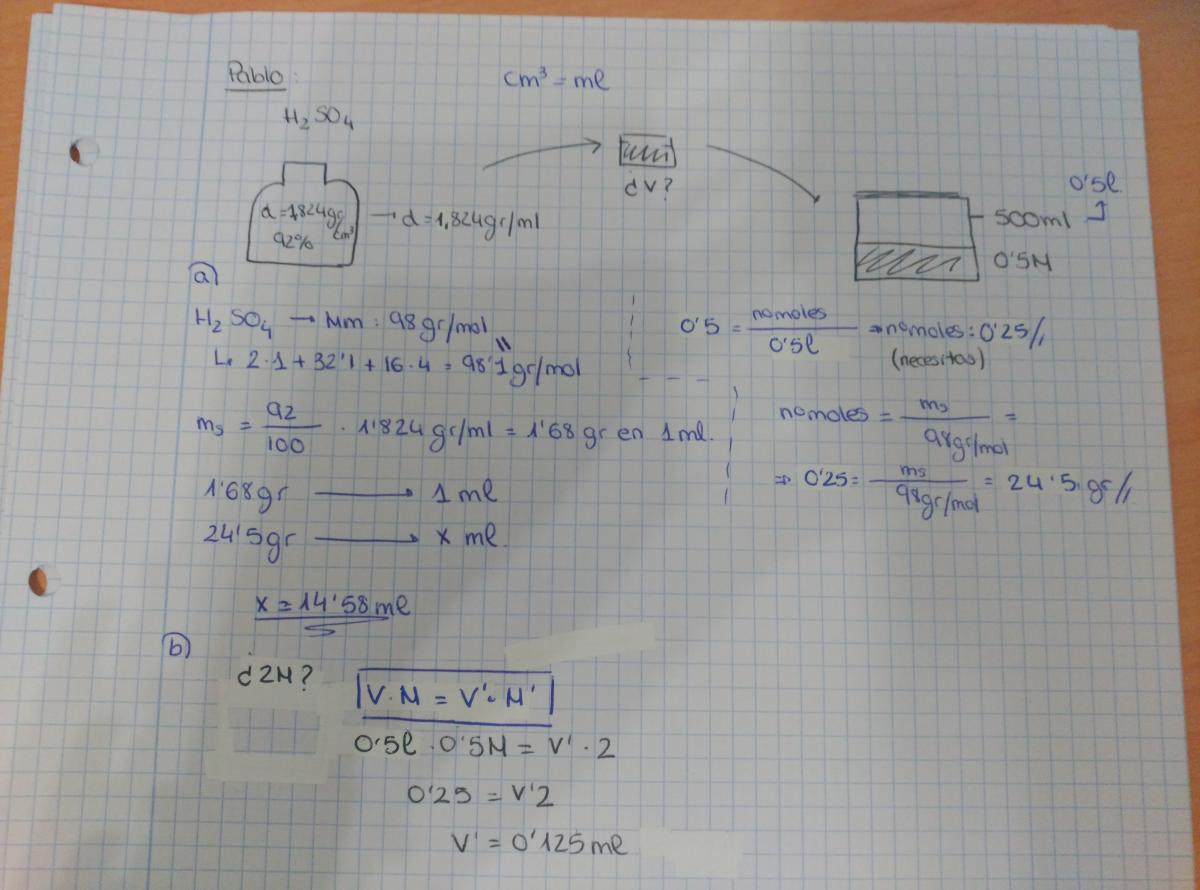 Pablo:
cm³ = ml
H₂SO₄
¿V?
d = 1,824 gr/cm³
92%
→ d = 1,824 gr/ml
0'5l
500ml
0'5M
a)
H₂SO₄ → Mm : 98 gr/mol
2·1 + 32'1 + 16·4 = 98'1 gr/mol
0'5 = nomoles / 0'5l ⇒ nomoles: 0'25//
(necesitas)
ms = 92/100 · 1'824 gr/ml = 1'68 gr en 1ml.
nomoles = ms / 98gr/mol =
⇒ 0'25 = ms / 98gr/mol = 24'5 gr//
1'68gr → 1 ml
24'5gr → x ml.
x = 14'58 ml
b)
¿2M?
V·M = V'·M'
0'5l · 0'5M = V' · 2
0'25 = V'2
V' = 0'125 ml